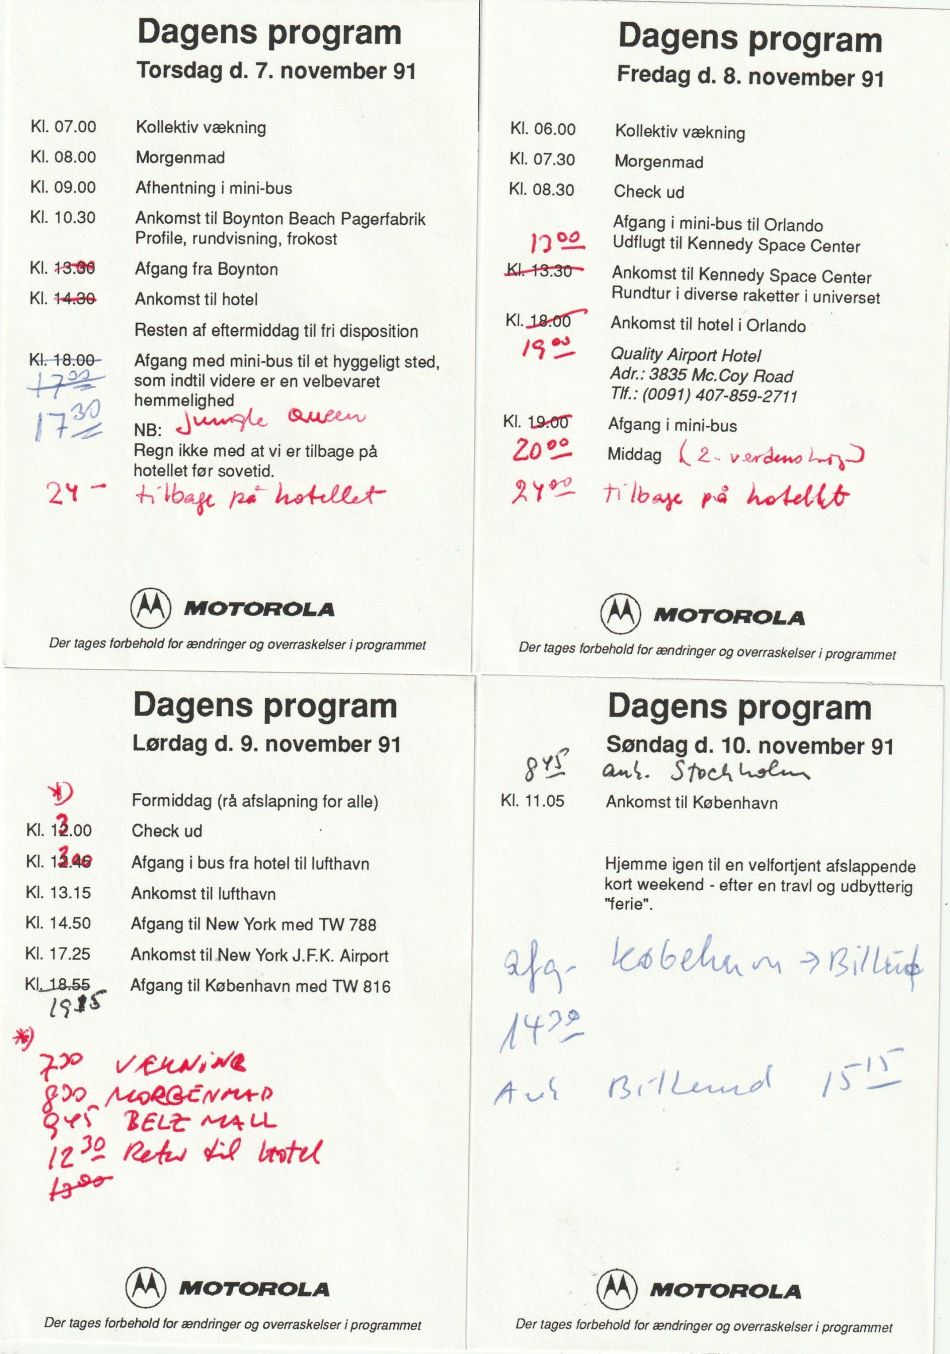 Dagens program
Torsdag d. 7. november 91
Kl. 07.00 Kollektiv vækning
Kl. 08.00 Morgenmad
Kl. 09.00 Afhentning i mini-bus
Kl. 10.30 Ankomst til Boynton Beach Pagerfabrik
Profile, rundvisning, frokost
Kl. 13.30 Afgang fra Boynton
Kl. 14.30 Ankomst til hotel
Resten af eftermiddag til fri disposition
Kl. 18.00 Afgang med mini-bus til et hyggeligt sted,
17 00 som indtil videre er en velbevaret
hemmelighed
17 30
NB: Jungle Queen
Regn ikke med at vi er tilbage på
hotellet før sovetid.
24 - tilbage på hotellet
MOTOROLA
Der tages forbehold for ændringer og overraskelser i programmet
Dagens program
Fredag d. 8. november 91
Kl. 06.00 Kollektiv vækning
Kl. 07.30 Morgenmad
Kl. 08.30 Check ud
Afgang i mini-bus til Orlando
Udflugt til Kennedy Space Center
13 00
Kl. 13.30 Ankomst til Kennedy Space Center
Rundtur i diverse raketter i universet
Kl. 18.00 Ankomst til hotel i Orlando
19 00
Quality Airport Hotel
Adr.: 3835 Mc.Coy Road
Tlf.: (0091) 407-859-2711
Kl. 19.00 Afgang i mini-bus
20 00 Middag (2. verdens
24 00 tilbage på hotellet
MOTOROLA
Der tages forbehold for ændringer og overraskelser i programmet
Dagens program
Lørdag d. 9. november 91
*) Formiddag (rå afslapning for alle)
Kl. 13.00 Check ud
Kl. 13 00 Afgang i bus fra hotel til lufthavn
Kl. 13.15 Ankomst til lufthavn
Kl. 14.50 Afgang til New York med TW 788
Kl. 17.25 Ankomst til New York J.F.K. Airport
Kl. 18.55 Afgang til København med TW 816
*)
7 30 VÆKNING
8 30 MORGENMAD
9 45 BELZ MALL
12 30 Retur til hotel
13 00
MOTOROLA
Der tages forbehold for ændringer og overraskelser i programmet
Dagens program
Søndag d. 10. november 91
8 45 ank. Stockholm
Kl. 11.05 Ankomst til København
Hjemme igen til en velfortjent afslappende
kort weekend - efter en travl og udbytterig
"ferie".
afg. København → Billund
14 30
Ank Billund 15 15
MOTOROLA
Der tages forbehold for ændringer og overraskelser i programmet